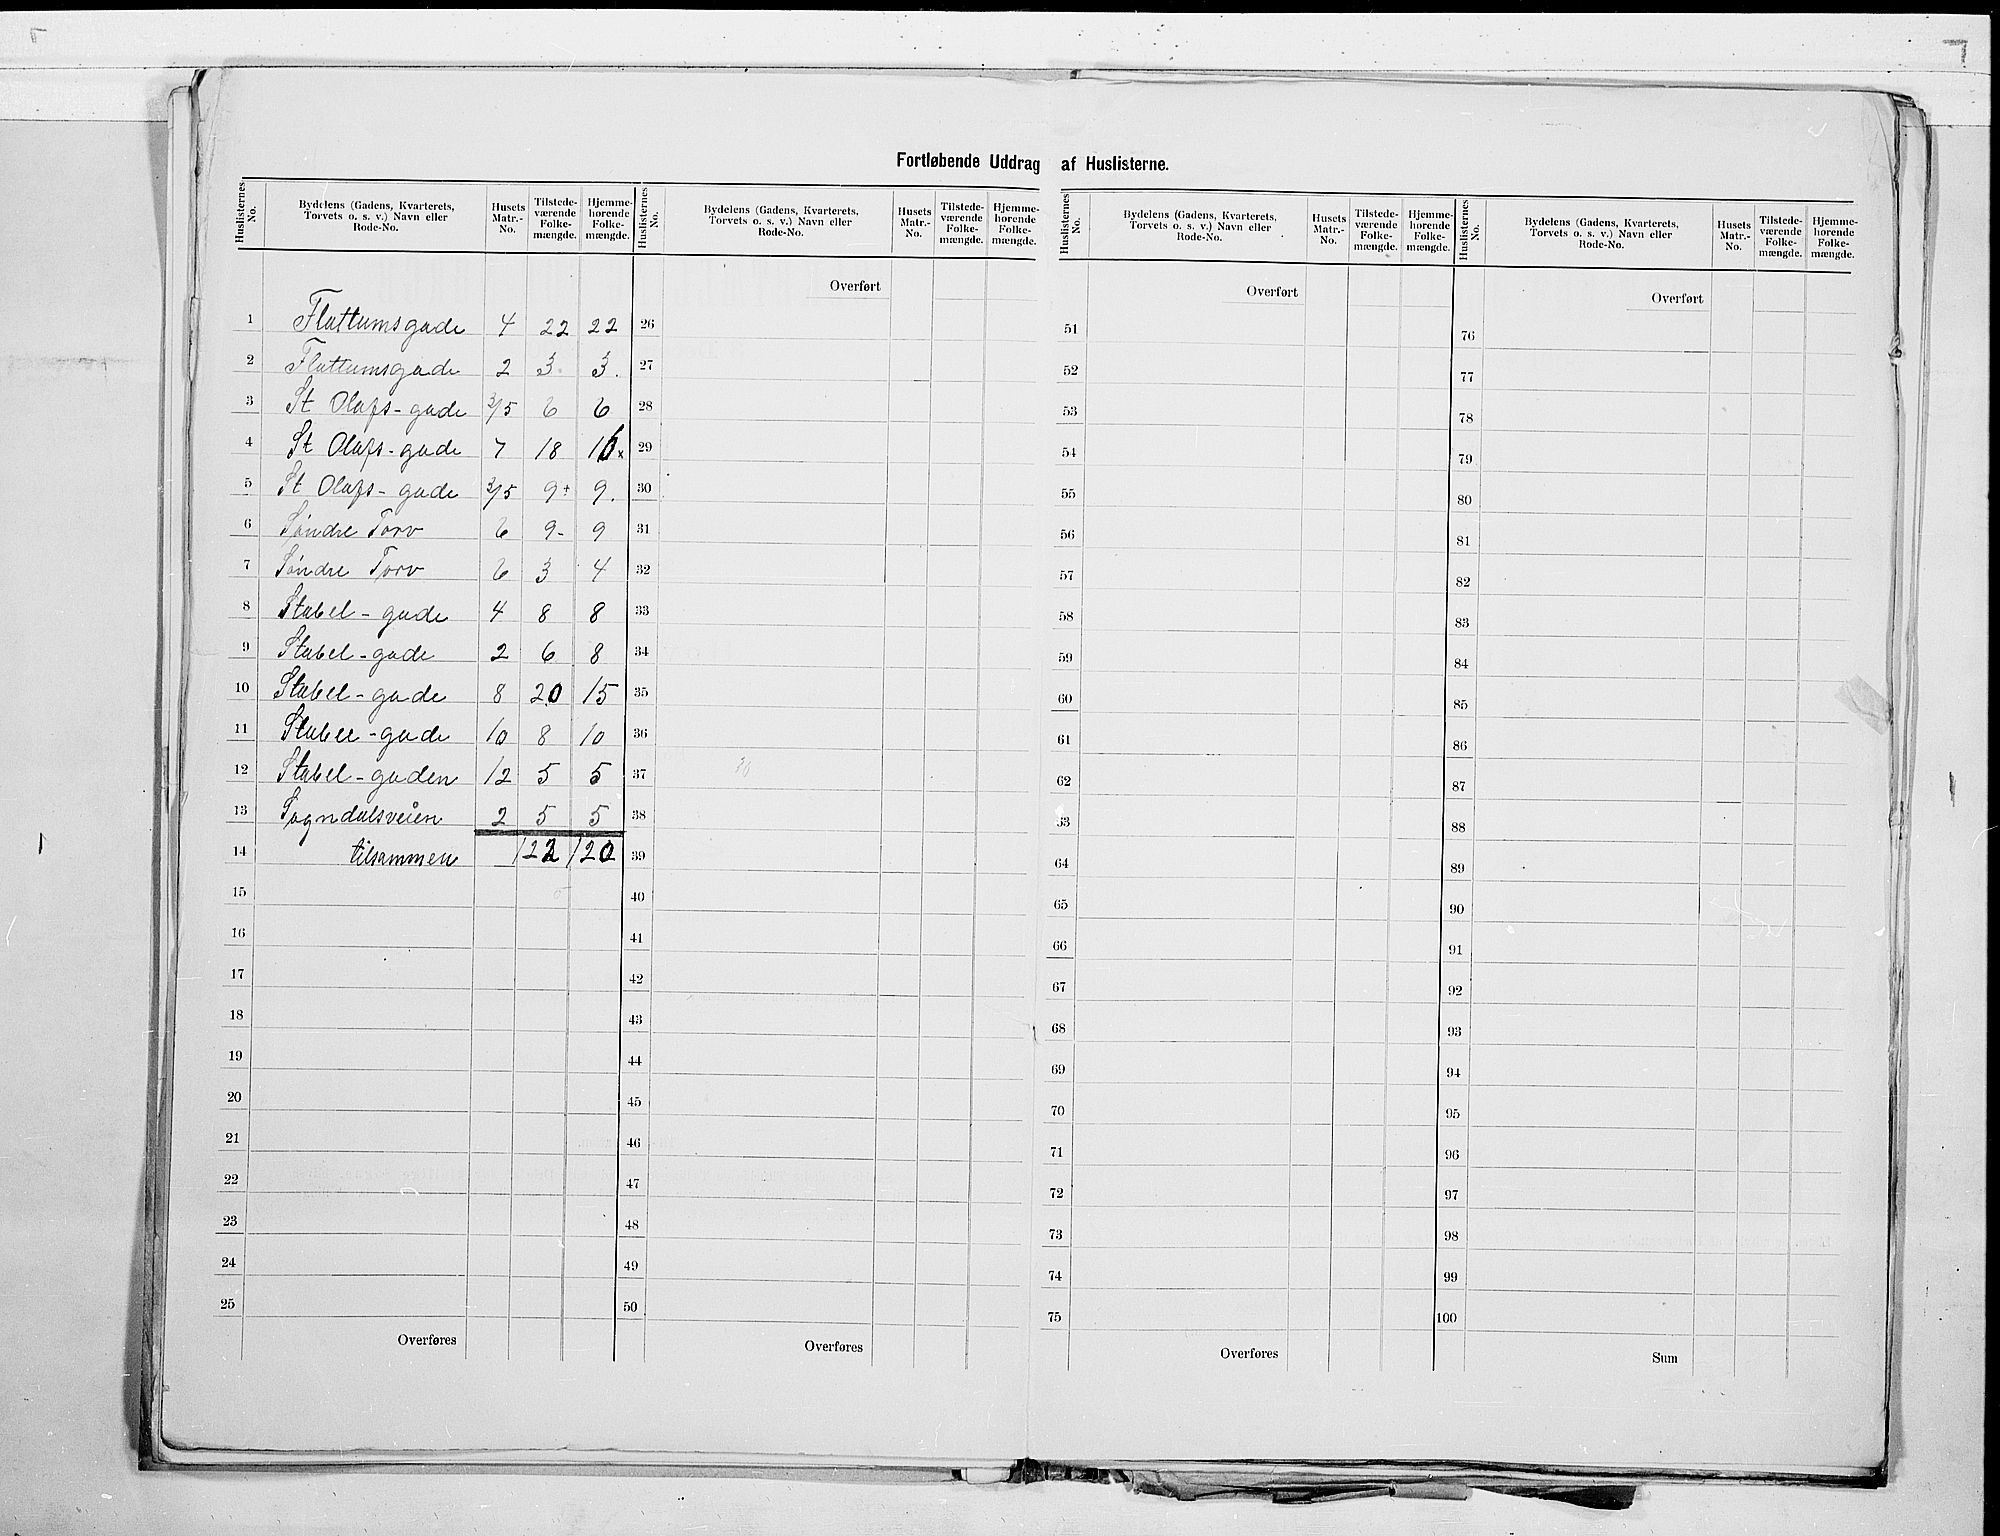 Fortløbende Uddrag af Huslisterne.
Huslisternes No. | Bydelens (Gadens, Kvarterets, Torvets o. s. v.) Navn eller Rode-No. | Husets Matr.-No. | Tilstede-værende Folke-mængde. | Hjemme-hørende Folke-mængde. | Huslisternes No. | Bydelens (Gadens, Kvarterets, Torvets o. s. v.) Navn eller Rode-No. | Husets Matr.-No. | Tilstede-værende Folke-mængde. | Hjemme-hørende Folke-mængde. | Huslisternes No. | Bydelens (Gadens, Kvarterets, Torvets o. s. v.) Navn eller Rode-No. | Husets Matr.-No. | Tilstede-værende Folke-mængde. | Hjemme-hørende Folke-mængde. | Huslisternes No. | Bydelens (Gadens, Kvarterets, Torvets o. s. v.) Navn eller Rode-No. | Husets Matr.-No. | Tilstede-værende Folke-mængde. | Hjemme-hørende Folke-mængde.
Overført Overført Overført
1 Flattumsgade 4 22 22 26 51 76
2 Flattumsgade 2 3 3. 27 52 77
3 St Olafs-gade 3/5 6 6 28 53 78
4 St Olafs-gade 7 18 16x 29 54 79
5 St Olafs-gade 3/5 9+ 9. 30 55 80
6 Søndre Torv 6 9- 9 31 56 81
7 Søndre Torv 6 3 4 32 57 82
8 Stabel-gade 4 8 8 33 58 83
9 Stabel-gade 2 6 8 34 59 84
10 Stabel-gade 8 20 15 35 60 85
11 Stabel-gade 10 8 10 36 61 86
12 Stabel-gaden 12 5 5 37 62 87
13 Sogndalsveien 2 5 5 38 63 88
14 tilsammen 122 120 39 64 89
15 40 65 90
16 41 66 91
17 42 67 92
18 43 68 93
19 44 69 94
20 45 70 95
21 46 71 96
22 47 72 97
23 48 73 98
24 49 74 99
25 50 75 100
Overføres Overføres Overføres Sum